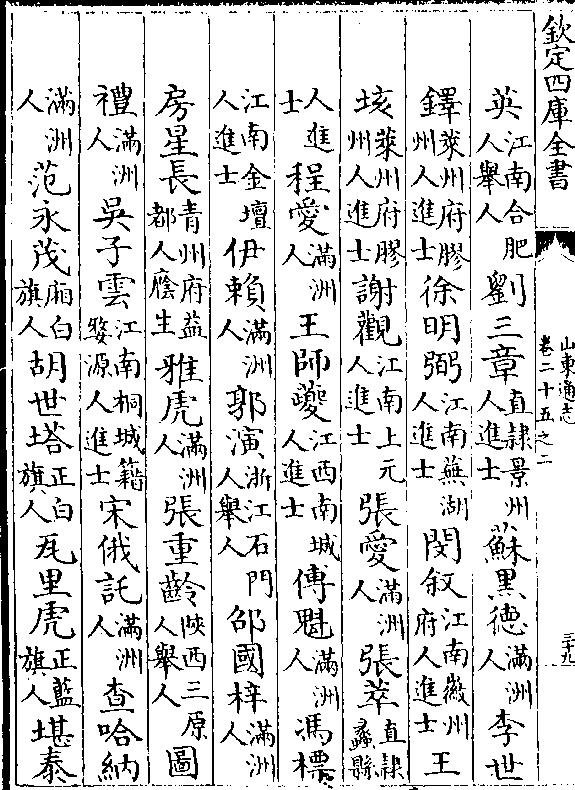 欽定四庫全書
山東通志
卷二十五之二
三十九
英江南合肥人舉人劉三章直隸景州人進士蘇黑德滿洲人李世
鐸萊州府膠州人進士徐明弼江南蕪湖人進士閔叙江南徽州府人進士王
垓萊州府膠州人進士謝觀江南上元人進士張愛滿洲人張萃直隸蠡縣
人進士程愛滿洲人王師夔江西南城人進士傅魁滿洲人馮標
江南金壇人進士伊賴滿洲人郭演浙江石門人舉人邵國梓滿洲人
房星長青州府益都人廕生雅虎滿洲人張重齡陜西三原人舉人圖
禮滿洲人吳子雲江南桐城籍婺源人進士宋俄託滿洲人查哈納
滿洲人范永茂廂白旗人胡世塔正白旗人瓦里虎正藍旗人堪泰